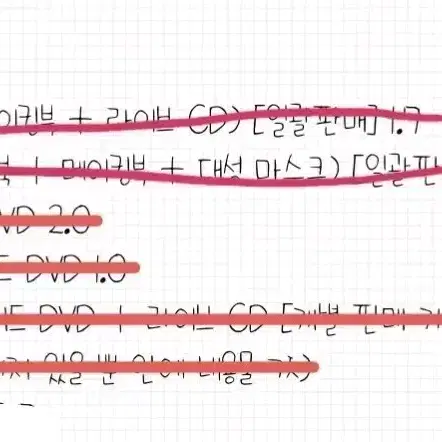 이킹북 + 라이브 CD) [일괄판매] 1.7
북 + 메이킹북 + 대성 마스크) [일괄판
VD 2.0
드 DVD 1.0
드 DVD + 라이브 CD [개별 판매
있을 뿐 안에 내용물